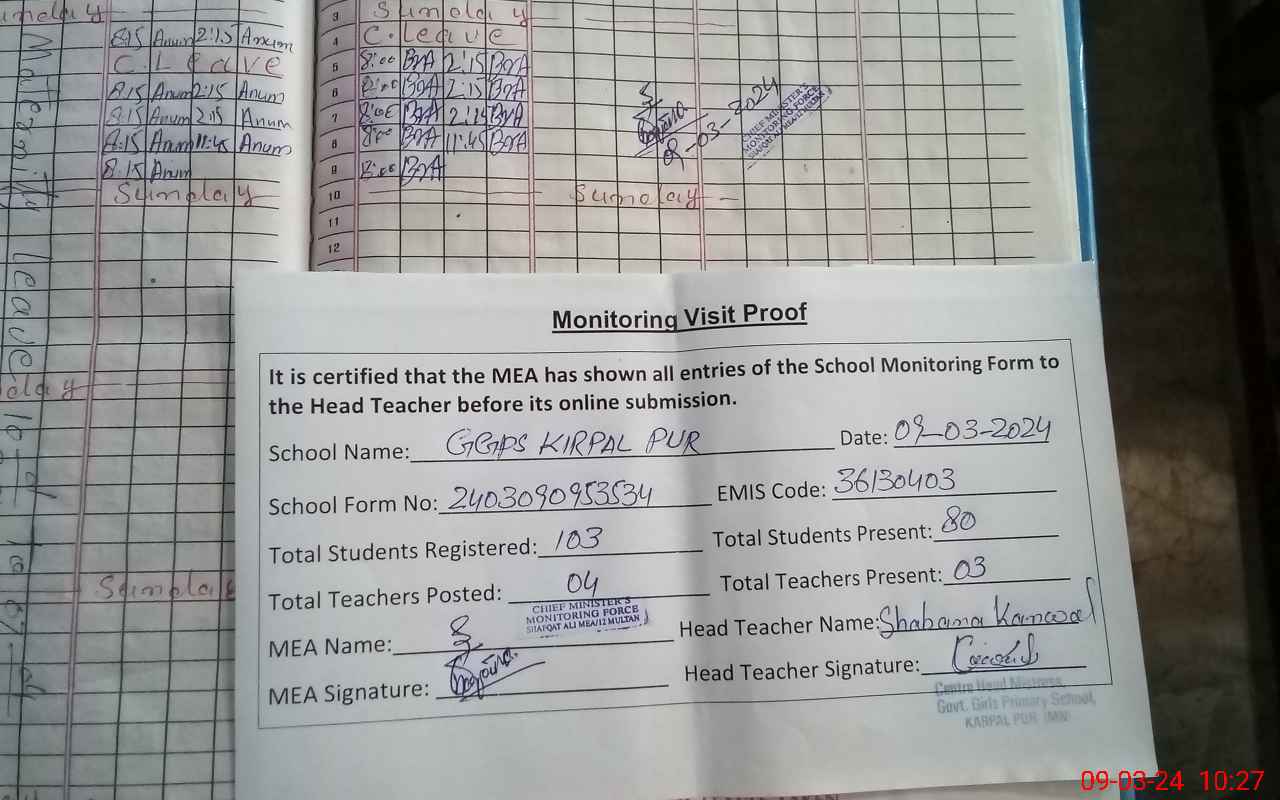 Sunday
8:15 Anum 2:15 Anum
C. Leave
8:15 Anum 2:15 Anum
8:15 Anum 2:15 Anum
8:15 Anum 11:45 Anum
8:15 Anum
Sunday
Maternity Leave
Sunday
3 Sunday
4 C. leave
5 8:00 2:15
6 8:00 2:15
7 8:00
8 8:00 11:45
9 8:00
10 Sunday
11
12
03-2024
CHIEF MINISTER'S
MONITORING FORCE
SHAFQAT ALI MEA/12 MULTAN
Monitoring Visit Proof
It is certified that the MEA has shown all entries of the School Monitoring Form to
the Head Teacher before its online submission.
School Name: GGPS KIRPAL PUR Date: 09-03-2024
School Form No: 2403090953534 EMIS Code: 36130403
Total Students Registered: 103 Total Students Present: 80
Total Teachers Posted: 04 Total Teachers Present: 03
CHIEF MINISTER'S
MONITORING FORCE
SHAFQAT ALI MEA/12 MULTAN
MEA Name: Head Teacher Name: Shabana Kanwal
MEA Signature: Head Teacher Signature:
Centre Head Mistress
Govt. Girls Primary School,
KARPAL PUR (MN)
09-03-24 10:27